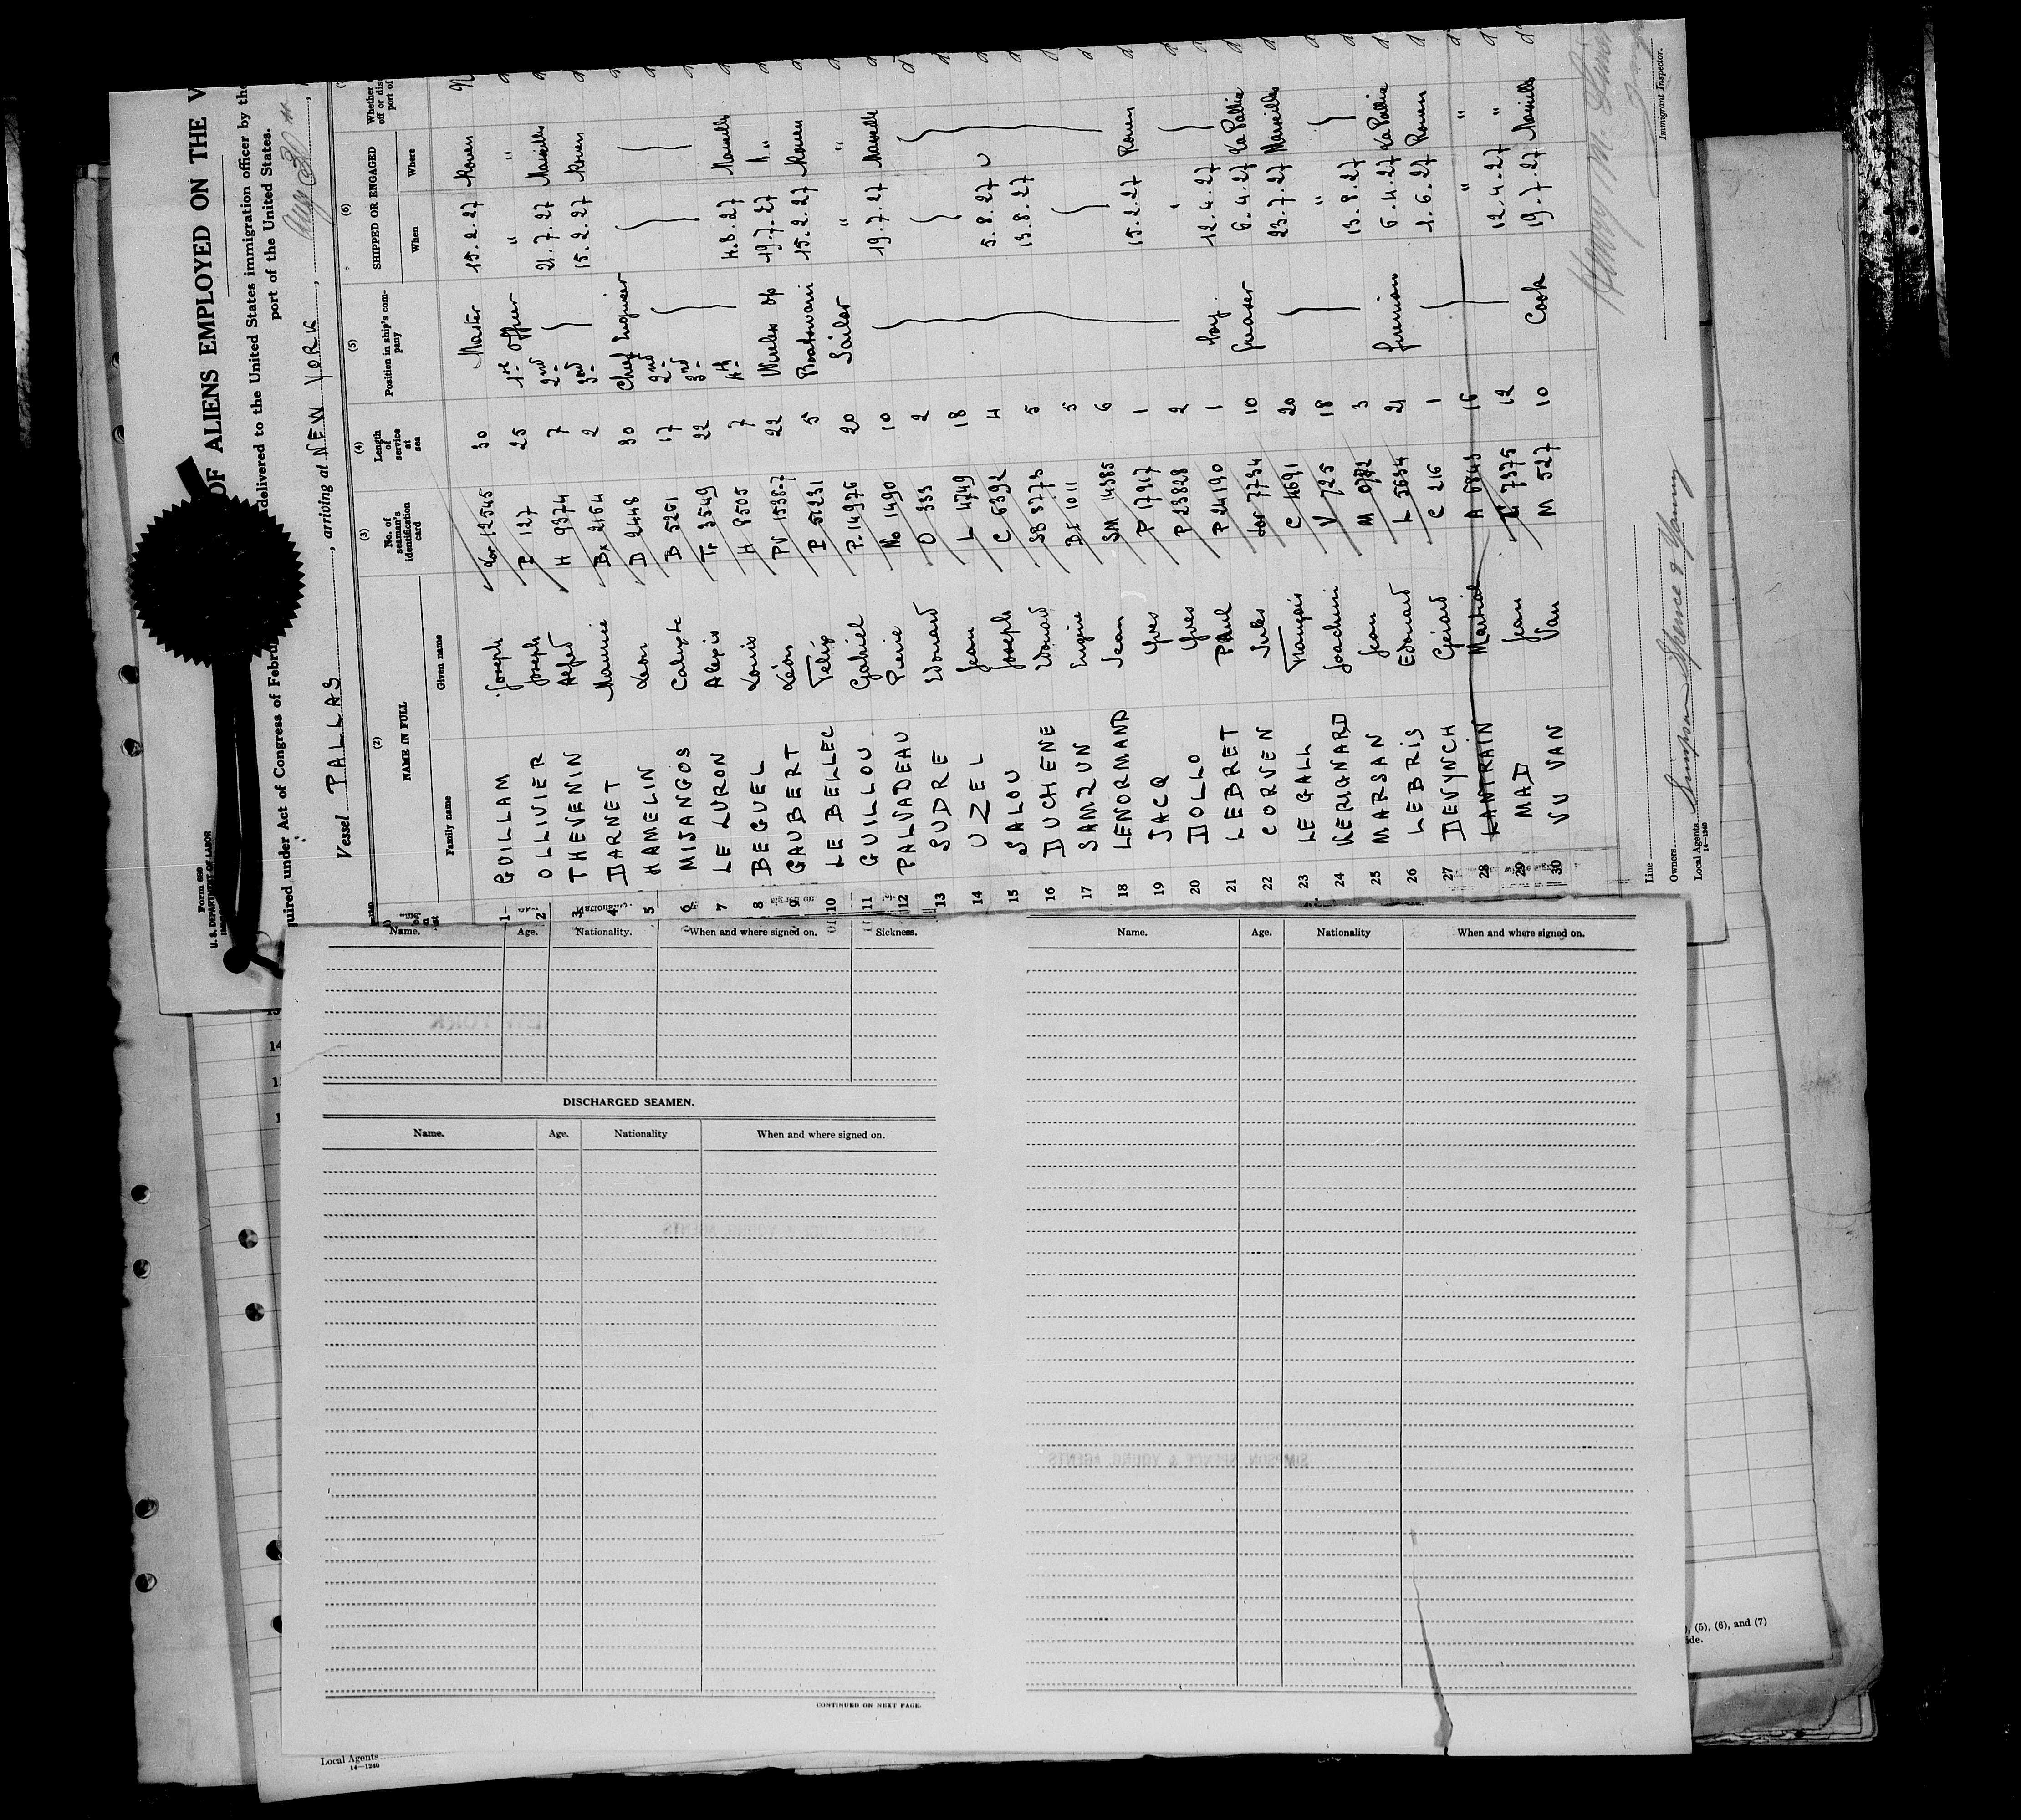 Form 680
U. S. DEPARTMENT OF LABOR
OF ALIENS EMPLOYED ON THE
quired under Act of Congress of Febru
delivered to the United States immigration officer by the
port of the United States.
Vessel PALLAS, arriving at NEW YORK, Aug 30
(2) (3) (4) (5) (6)
NAME IN FULL
Family name Given name
No. of seaman's identification card
Length of service at sea
Position in ship's company
SHIPPED OR ENGAGED
When Where
Whether
off or dis
port of
1 GUILLAM Joseph Lor 12545 30 Master 15.2.27 Rouen
2 OLLIVIER Joseph P 127 25 1st Officer " "
3 THEVENIN Alfred H 9374 7 2nd 21.7.27 Marseilles
4 DARNET Maurice Bx 2164 2 3rd 15.2.27 Rouen
5 HAMELIN Léon D 2448 30 Chief Engineer
6 MIJANGOS Calixte B 5261 17 2nd
7 LE LURON Alexis Tr 3549 22 3rd
8 BEGUEL Louis H 8505 7 4th 4.8.27 Marseilles
9 GAUBERT Léon PV 1538-7 22 Wireless op 19.7.27 "
10 LE BELLEC Felix P 51231 5 Boatswain 15.2.27 Rouen
11 GUILLOU Gabriel P. 14976 20 Sailor " "
12 PALVADEAU Pierre No 1490 10 19.7.27 Marseille
13 SUDRE Edouard O 333 2
14 UZEL Jean L 4749 18
15 SALOU Joseph C 6392 4 5.8.27
16 DUCHENE Edouard SB 8773 5 13.8.27
17 SAMZUN Eugène BI 1011 5
18 LENORMAND Jean SM 14385 6
19 JACQ Yves P 17917 1 15.2.27 Rouen
20 DOLLO Yves P 23828 2
21 LEBRET Paul P 24190 1 boy 12.4.27
22 CORVEN Jules Lor 7734 10 Greaser 6.4.27 La Pallice
23 LE GALL François C 4691 20 23.7.27 Marseilles
24 KERIGNARD Joachim V 725 18 "
25 MARSAN Jean M 3 13.8.27
26 LEBRIS Edouard L 5634 21 fireman 6.4.27 La Pallice
27 DEVYNCH Gérard C 216 1 1.6.27 Rouen
28 LANTRAIN Martial A 6843 16 " "
29 MAD Jean 7375 12 12.4.27 "
30 VU VAN Van M 527 10 Cook 19.7.27 Marseille
Henry M.
Immigrant Inspector.
Line
Owners
Local Agents Simpson Spence & Young
14—1240
Name. Age. Nationality. When and where signed on. Sickness.
NEW YORK
DISCHARGED SEAMEN.
Name. Age. Nationality When and where signed on.
SIMPSON SPENCE & YOUNG AGENTS
CONTINUED ON NEXT PAGE.
Name. Age. Nationality When and where signed on.
SIMPSON SPENCE & YOUNG AGENTS
Local Agents
14—1240
, (5), (6), and (7)
ide.